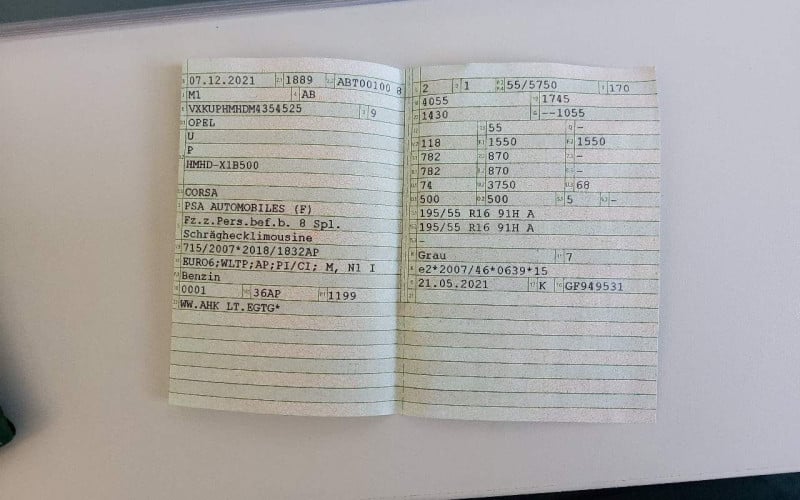 07.12.2021 1889 ABT00100 8
M1 AB
VXKUPHMHDM4354525 9
OPEL
U
P
HMHD-X1B500
CORSA
PSA AUTOMOBILES (F)
Fz.z.Pers.bef.b. 8 Spl.
Schräghecklimousine
715/2007*2018/1832AP
EURO6;WLTP;AP;PI/CI; M, N1 I
Benzin
0001 36AP 1199
WW.AHK LT.EGTG*
2 1 55/5750 170
4055 1745
1430 --1055
55 -
118 1550 1550
782 870 -
782 870 -
74 3750 68
500 500 5 -
195/55 R16 91H A
195/55 R16 91H A
-
Grau 7
e2*2007/46*0639*15
21.05.2021 K GF949531